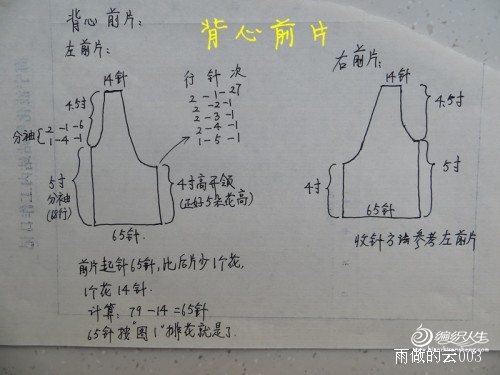 背心前片:
背心前片
左前片:
右前片:
14针
行 针 次
2-1-27
2-2-1
2-3-1
2-4-1
1-5-1
4.5寸
分袖 2-1-6
1-4-1
5寸
分袖
4寸高开领
(正好5朵花高)
65针.
14针
4.5寸
5寸
4寸
65针
收针方法参考左前片
前片起针65针,比后片少1个花,
1个花14针.
计算: 79-14=65针
65针按"图1"排花就是了.
编织人生
雨做的云003